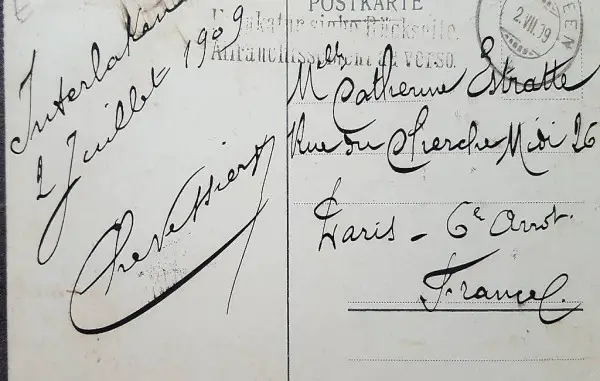 Interlaken
2 Juillet 1909
POSTKARTE
Frankatur siehe Rückseite.
Affranchissement au verso.
2.VII.09
Mlle Catherine Estratte
Rue du Cherche Midi 26
Paris - 6e Arrot.
France.